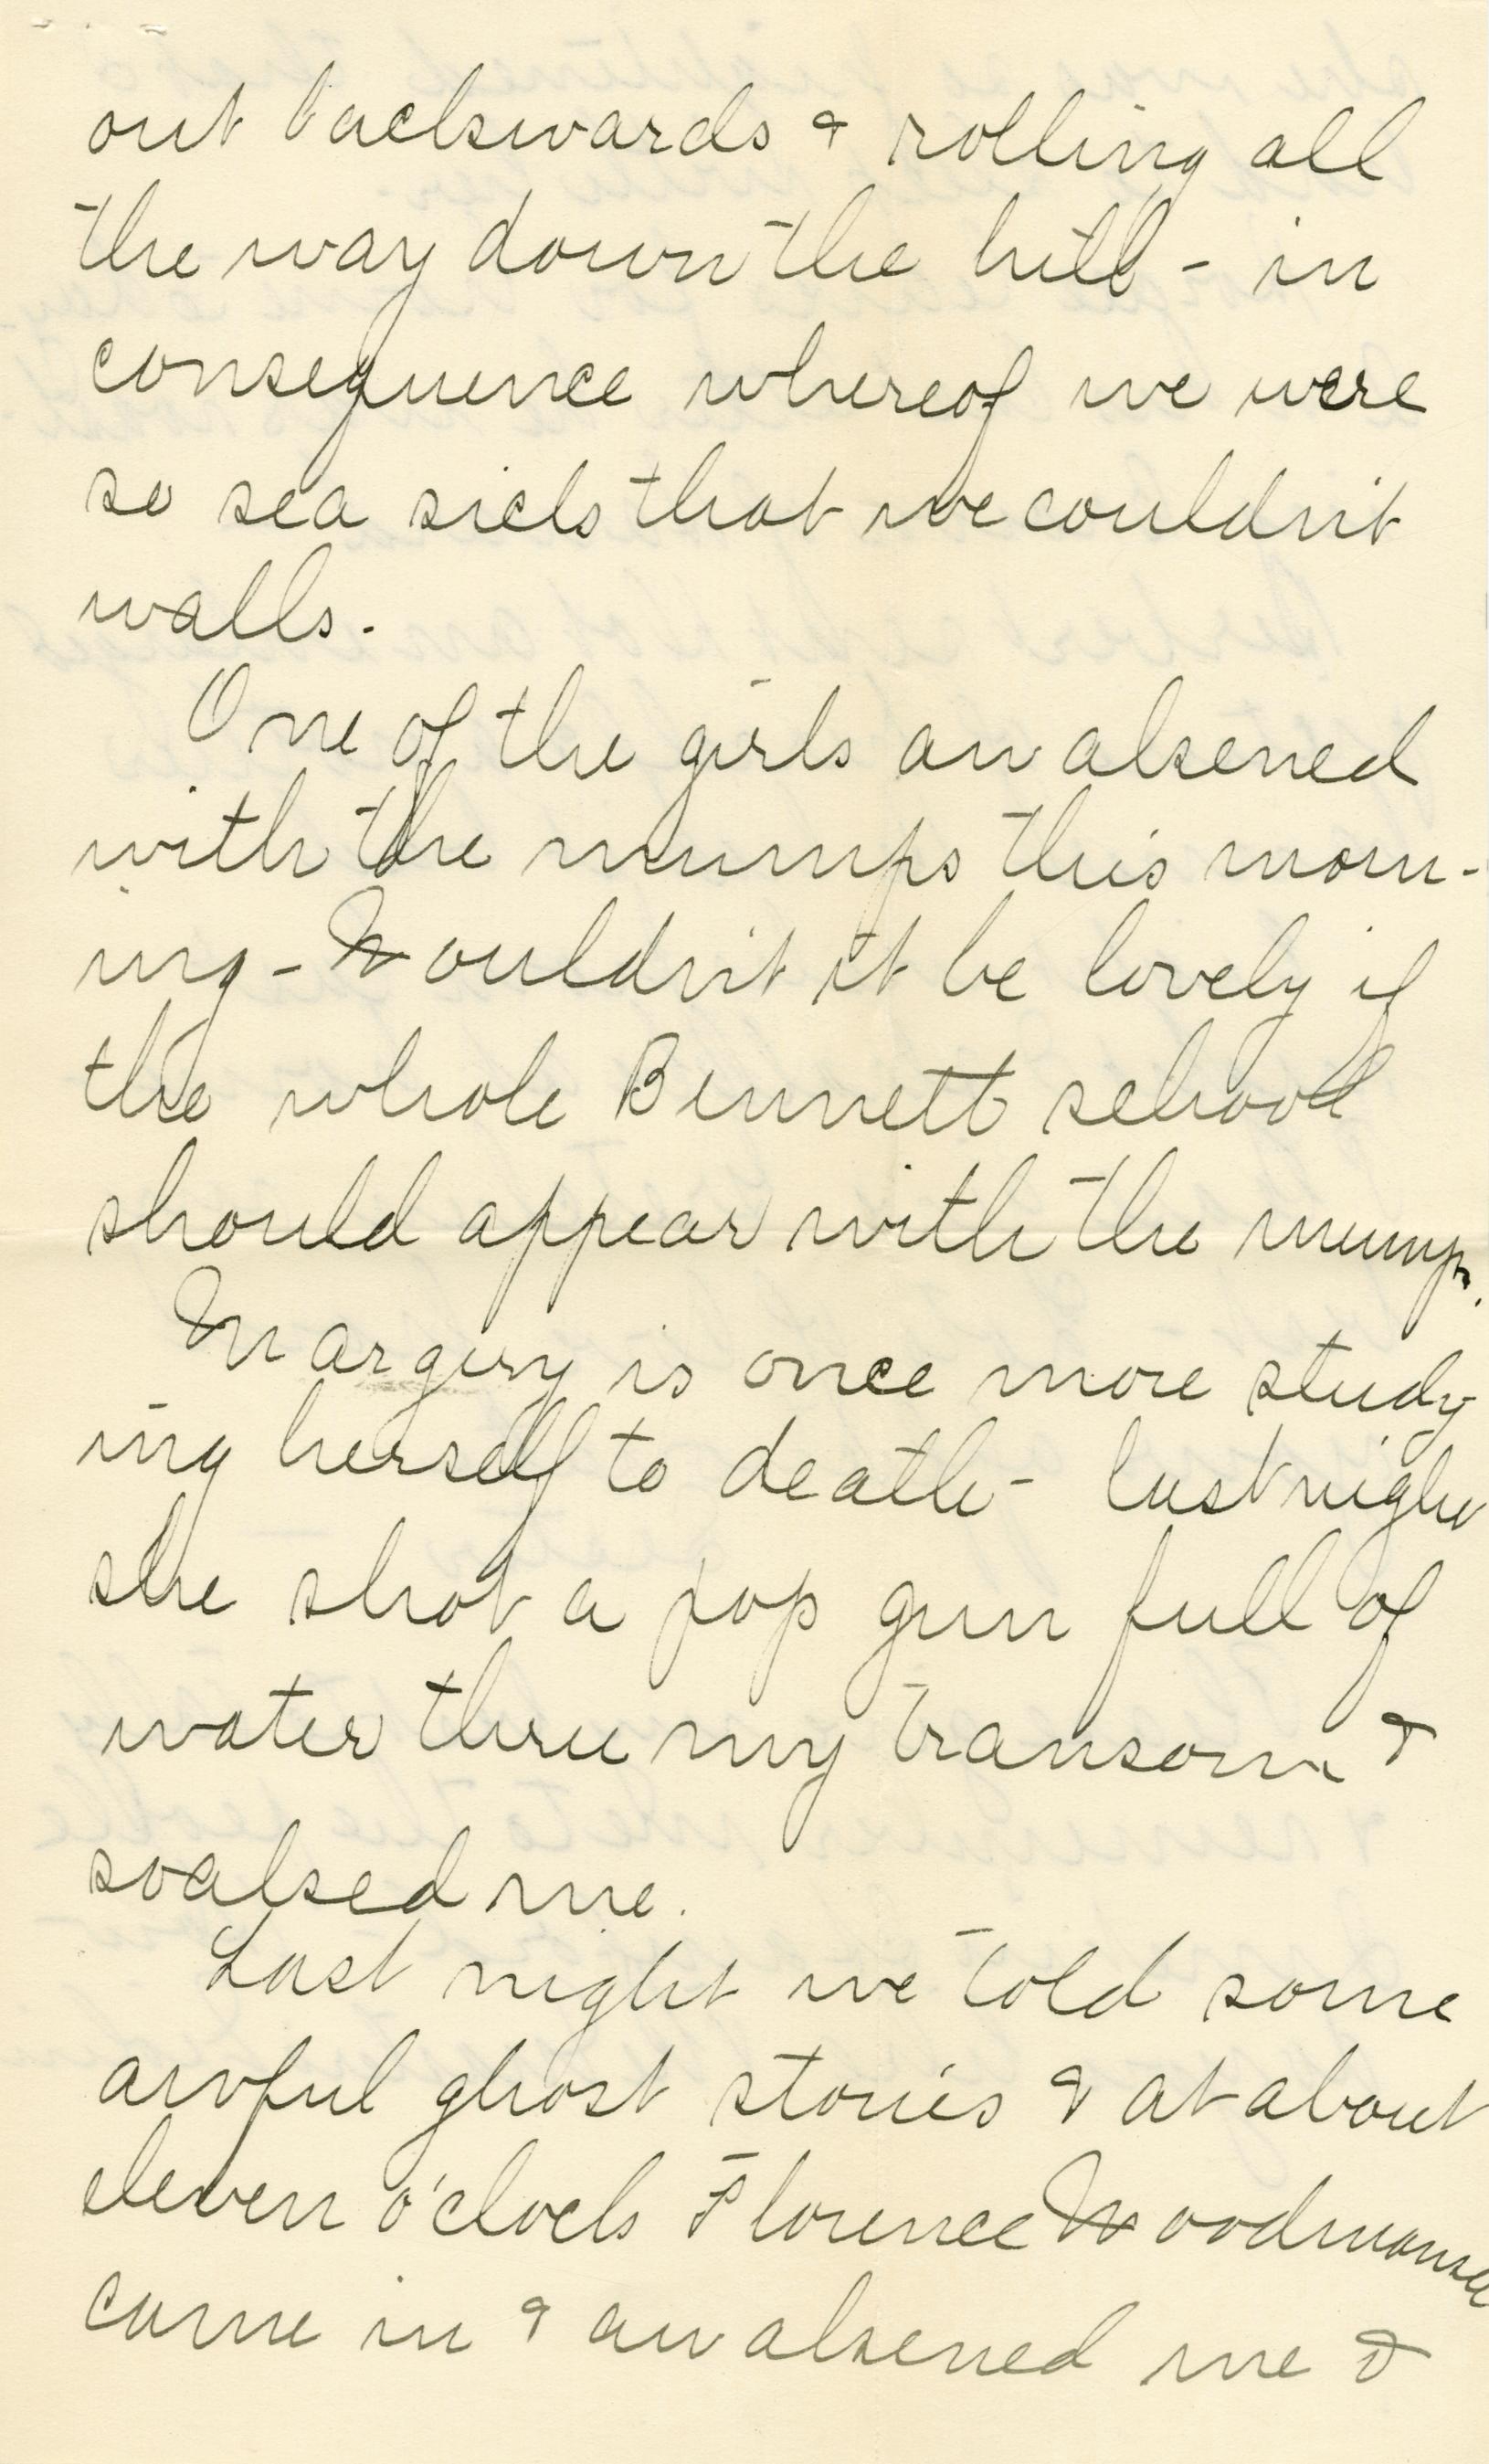 out backwards & rolling all
the way down the hill - in
consequence whereof we were
so sea sick that we couldn't
walk.
One of the girls awakened
with the mumps this morn-
ing - Wouldn't it be lovely if
the whole Bennett school
should appear with the mumps.
Margery is once more study
ing herself to death - last night
she shot a pop gun full of
water thru my transom &
soaked me.
Last night we told some
awful ghost stories & at about
eleven o'clock Florence Woodmansee
came in & awakened me &